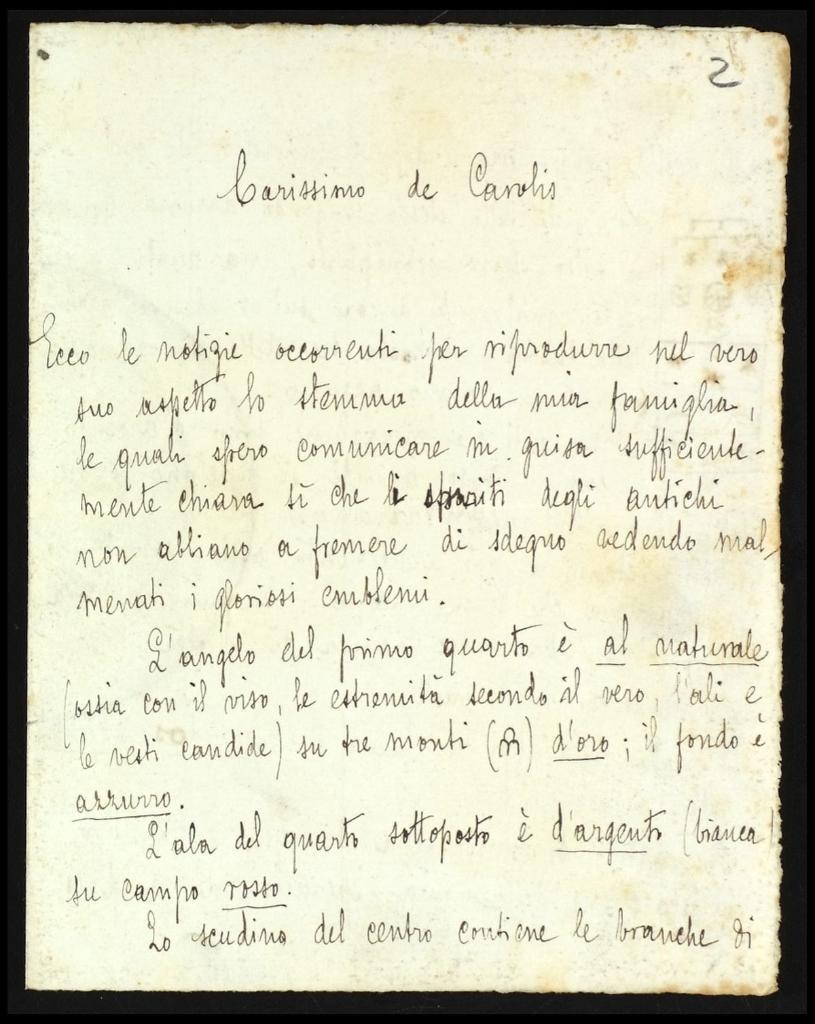 2
Carissimo de Carolis
Ecco le notizie occorrenti per riprodurre nel vero
suo aspetto lo stemma della mia famiglia,
le quali spero comunicare in guisa sufficiente-
mente chiara sì che li spiriti degli antichi
non abbiano a fremere di sdegno vedendo mal-
menati i gloriosi emblemi.
L'angelo del primo quarto è al naturale
(ossia con il viso, le estremità secondo il vero, l'ali e
le vesti candide) su tre monti ( ) d'oro; il fondo è
azzurro.
L'ala del quarto sottoposto è d'argento (bianca)
su campo rosso.
Lo scudino del centro contiene le branche di